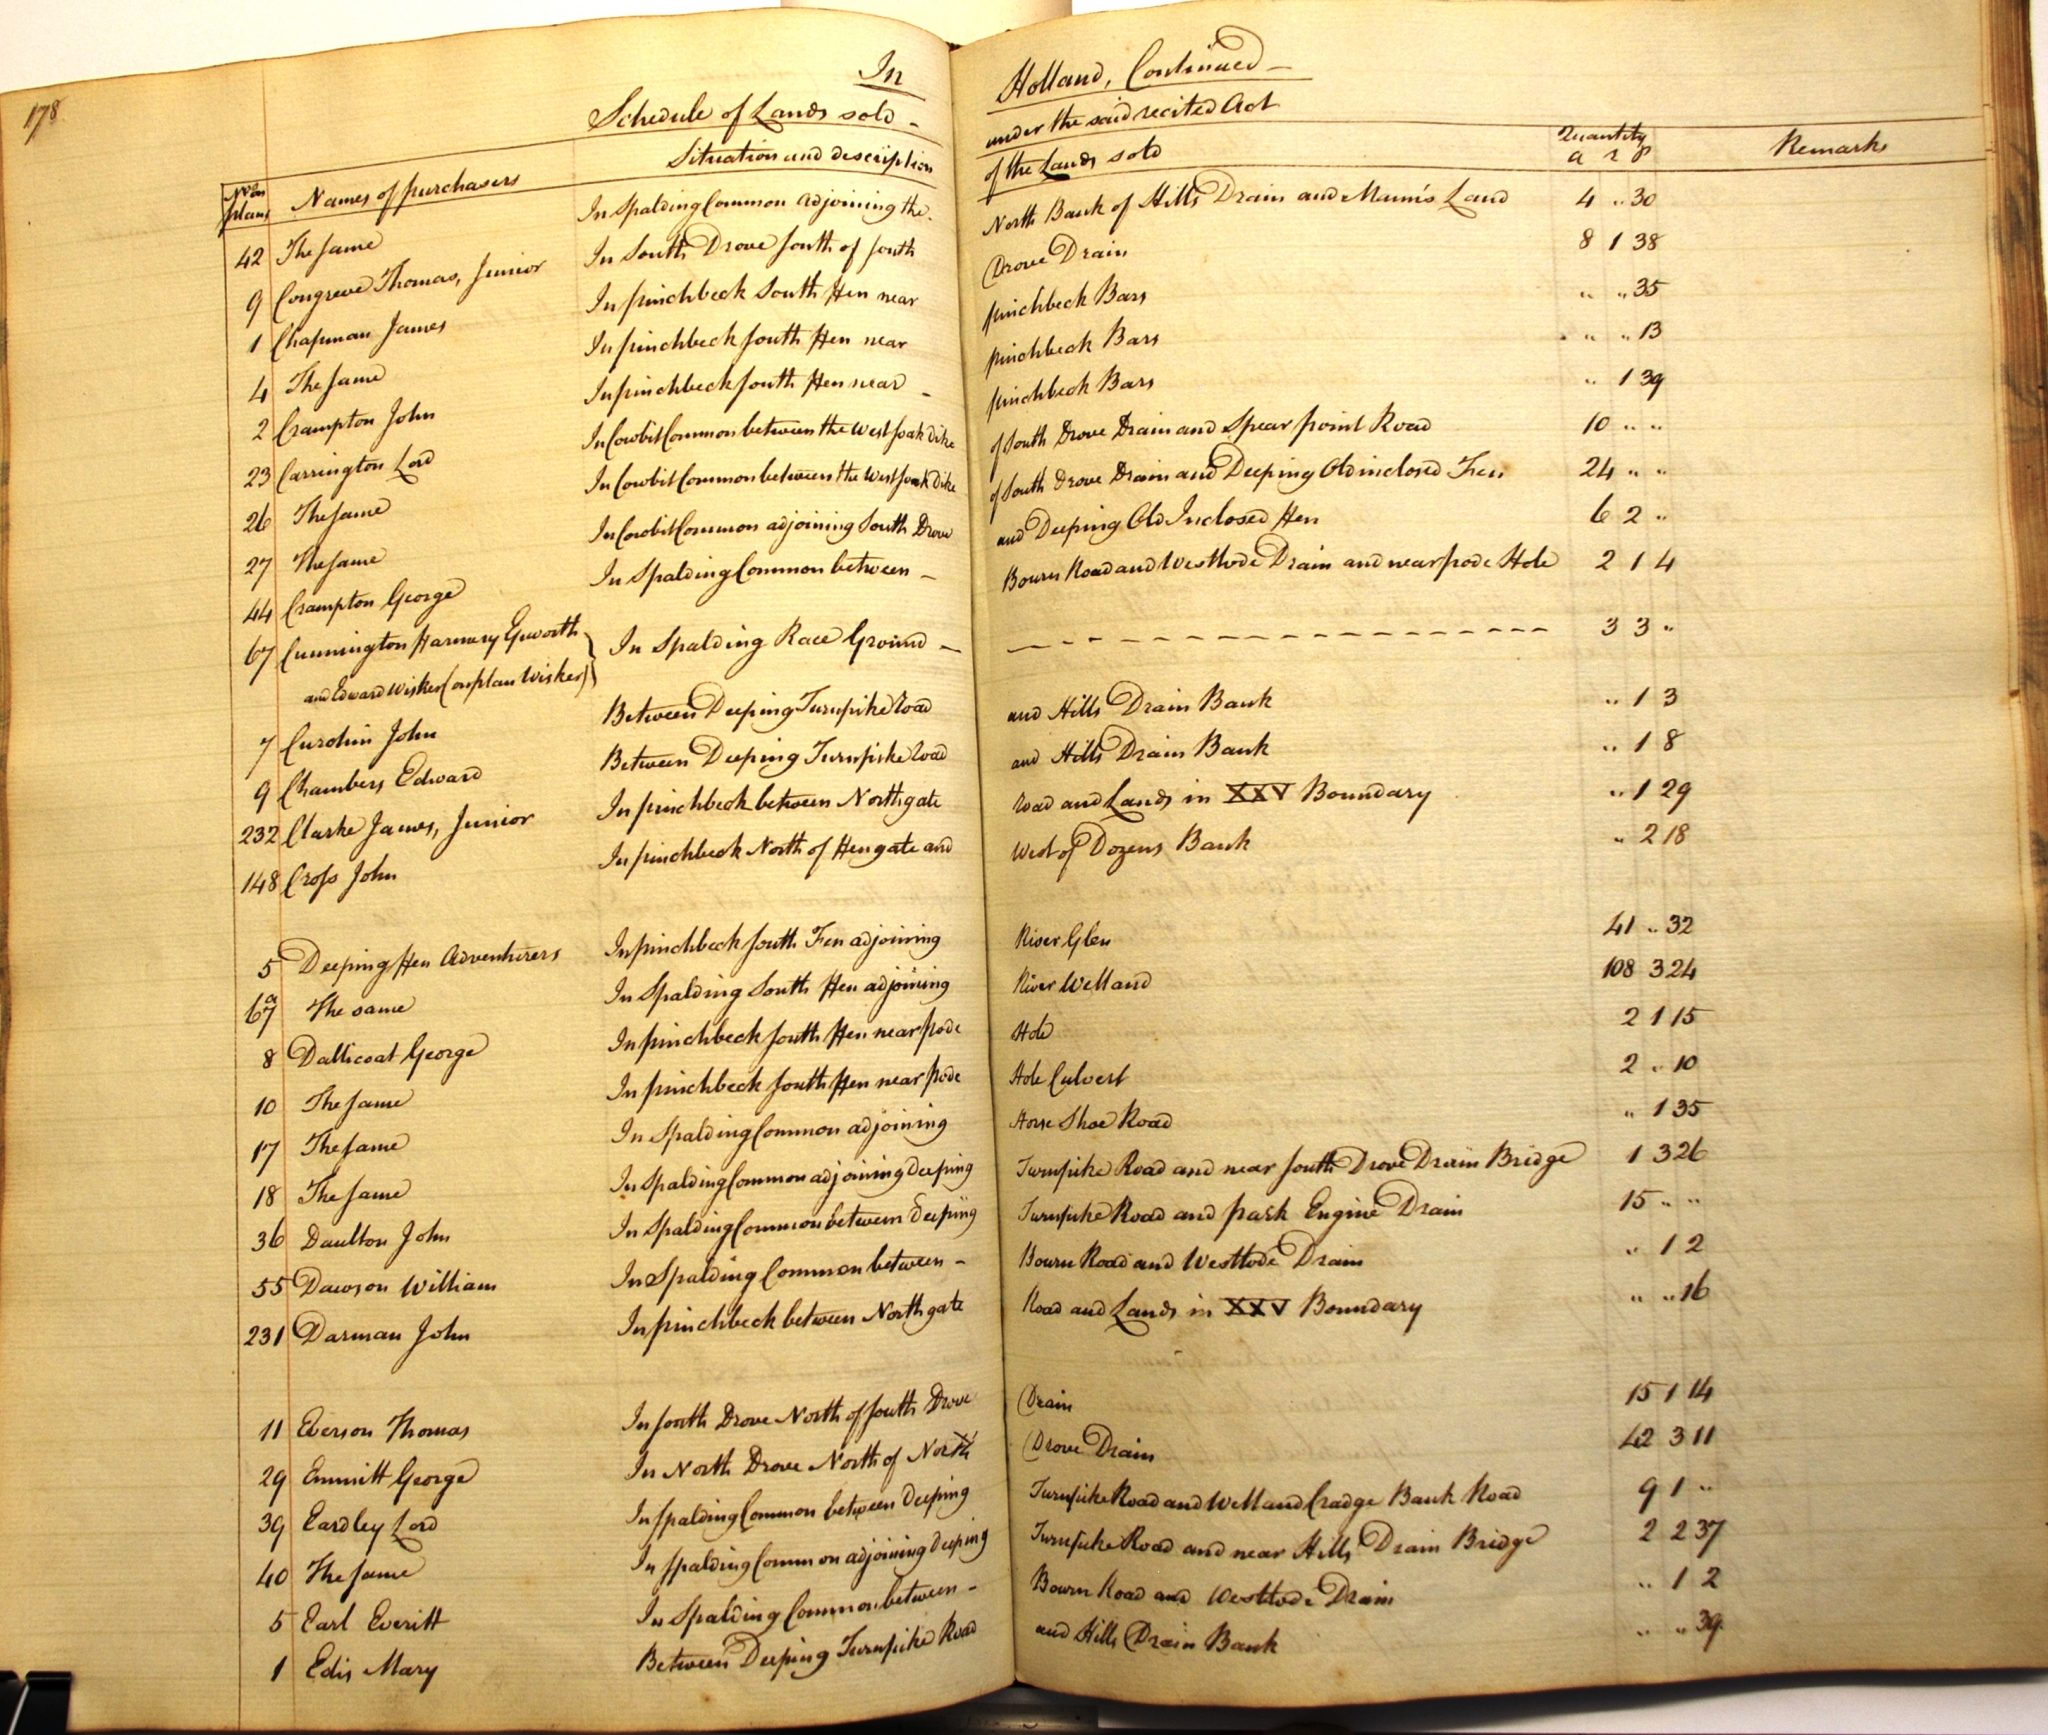 178
In Holland, Continued —
Schedule of Lands sold — under the said recited Act
No. on plans Names of purchasers Situation and description of the Lands sold Quantity a r p Remarks
42 The same In Spalding Common adjoining the North Bank of Hills Drain and Mann's Land 4 " 30
9 Congreve Thomas, Junior In South Drove South of South Drove Drain 8 1 38
1 Chapman James In pinchbeck South Fen near pinchbeck Bars " " 35
4 The same In pinchbeck South Fen near pinchbeck Bars " " 13
2 Crampton John In pinchbeck South Fen near — pinchbeck Bars " 1 39
23 Carrington Lord In Cowbit Common between the West Soak Dike of South Drove Drain and Spear point Road 10 " "
26 The same In Cowbit Common between the West Soak Dike of South Drove Drain and Deeping Old inclosed Fen 24 " "
27 The same In Cowbit Common adjoining South Drove and Deeping Old Inclosed Fen 6 2 "
44 Crampton George In Spalding Common between — Bourn Road and Westlode Drain and near pode Hole 2 1 4
67 Cunnington Harmery Epworth In Spalding Race Ground — 3 3 "
and Edward Wisker (on plan Wisker)
7 Curolin John Between Deeping Turnpike Road and Hills Drain Bank " 1 3
9 Chambers Edward Between Deeping Turnpike Road and Hills Drain Bank " 1 8
232 Clarke James, Junior In pinchbeck between Northgate Road and Lands in XXV Boundary " 1 29
148 Cross John In pinchbeck North of Fengate and West of Dozens Bank " 2 18
5 Deeping Fen Adventurers In pinchbeck South Fen adjoining River Glen 41 " 32
67a The same In Spalding South Fen adjoining River Welland 108 3 24
8 Dallicoat George In pinchbeck South Fen near pode Hole 2 1 15
10 The same In pinchbeck South Fen near pode Hole Culvert 2 " 10
17 The same In Spalding Common adjoining Horse Shoe Road " 1 35
18 The same In Spalding Common adjoining Deeping Turnpike Road and near South Drove Drain Bridge 1 3 26
36 Daulton John In Spalding Common between Deeping Turnpike Road and park Engine Drain 15 " "
55 Dawson William In Spalding Common between — Bourn Road and Westlode Drain " 1 2
231 Darman John In pinchbeck between Northgate Road and Lands in XXV Boundary " " 16
11 Everson Thomas In South Drove North of South Drove Drain 15 1 14
29 Emmitt George In North Drove North of North Drove Drain 42 3 11
39 Eardley Lord In Spalding Common between Deeping Turnpike Road and Welland Cradge Bank Road 9 1 "
40 The same In Spalding Common adjoining Deeping Turnpike Road and near Hills Drain Bridge 2 2 37
5 Earl Everitt In Spalding Common between — Bourn Road and Westlode Drain " 1 2
1 Edis Mary Between Deeping Turnpike Road and Hills Drain Bank " " 39